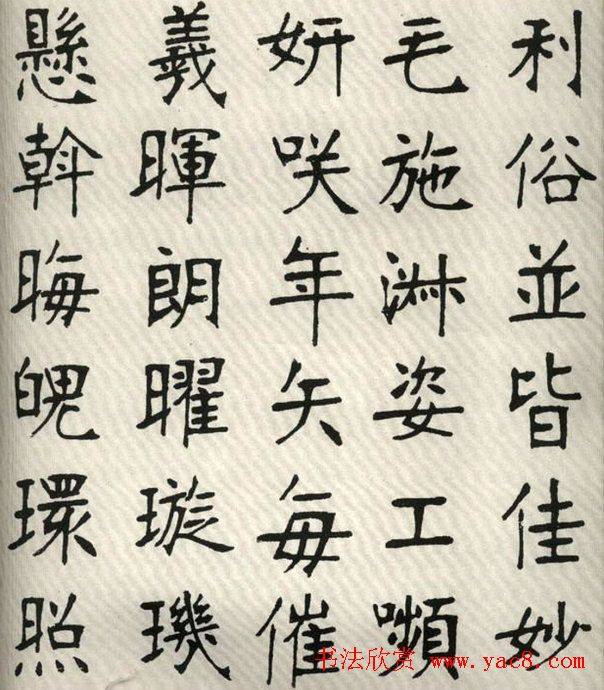 利俗並皆佳妙
毛施淋姿工嚬
妍咲年矢每催
羲暉朗曜璇璣
懸斡晦魄環照
书法欣赏 www.yac8.com